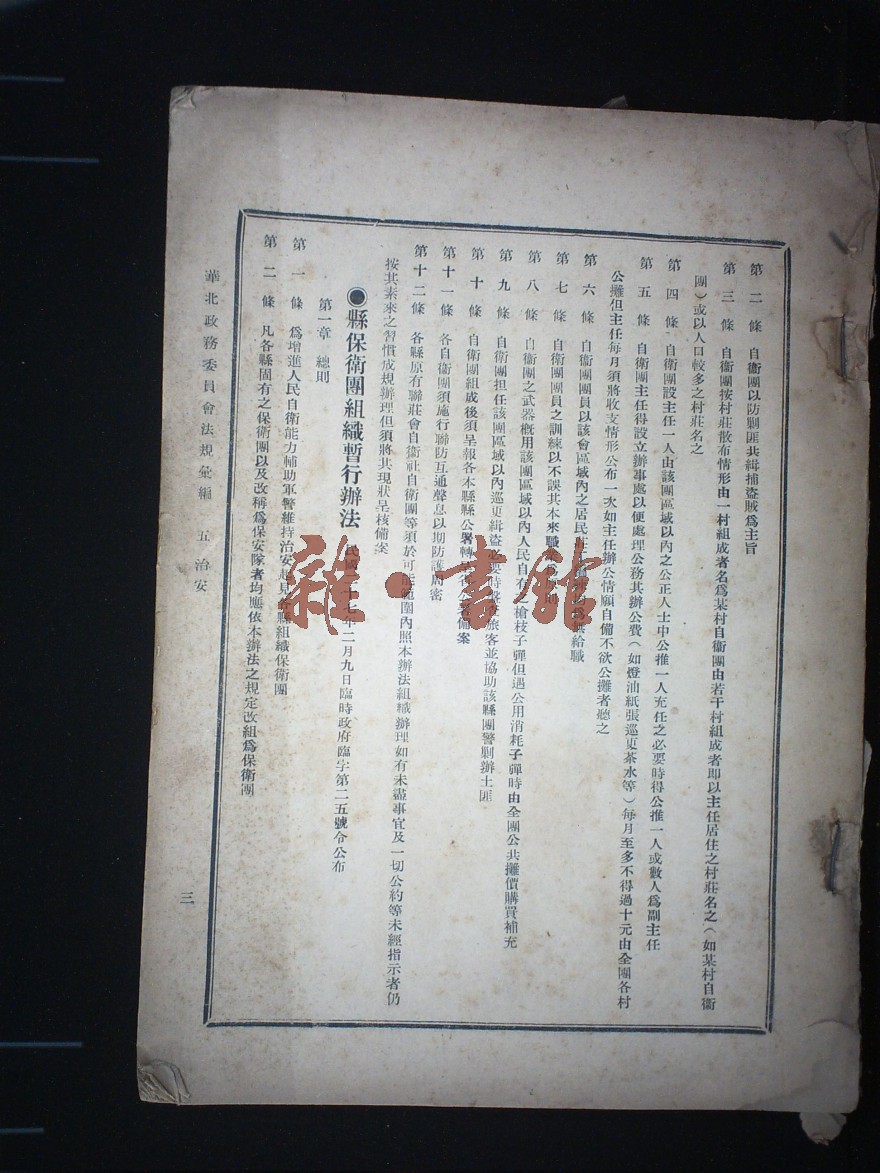 第二條　自衞團以防剿匪共緝捕盜賊爲主旨
第三條　自衞團按村莊散布情形由一村組成者名爲某村自衞團由若干村組成者即以主任居住之村莊名之（如某村自衞
團）或以人口較多之村莊名之
第四條　自衞團設主任一人由該團區域以內之公正人士中公推一人充任之必要時得公推一人或數人爲副主任
第五條　自衞團主任得設立辦事處以便處理公務其辦公費（如燈油紙張巡更茶水等）每月至多不得過十元由全團各村
公攤但主任每月須將收支情形公布一次如主任辦公情願自備不欲公攤者聽之
第六條　自衞團團員以該會區域內之居民　　　　爲無給職
第七條　自衞團團員之訓練以不誤其本來職
第八條　自衞團之武器槪用該團區域以內人民自有　槍枝子彈但遇公用消耗子彈時由全團公共攤價購買補充
第九條　自衞團担任該團區域以內巡更緝盜必要時　　旅客並協助該縣團警剿辦土匪
第十條　自衞團組成後須呈報各本縣縣公署轉　　　備案
第十一條　各自衞團須施行聯防互通聲息以期防護周密
第十二條　各縣原有聯莊會自衞社自衞團等須於可能範圍內照本辦法組織辦理如有未盡事宜及一切公約等未經指示者仍
按其素來之習慣成規辦理但須將其現狀呈核備案
●縣保衛團組織暫行辦法　民國二十七年二月九日臨時政府臨字第二五號令公布
第一章　總則
第一條　爲增進人民自衞能力輔助軍警維持治安起見各縣組織保衞團
第二條　凡各縣固有之保衞團以及改稱爲保安隊者均應依本辦法之規定改組爲保衞團
華北政務委員會法規彙編　五　治安
三
雜·書館